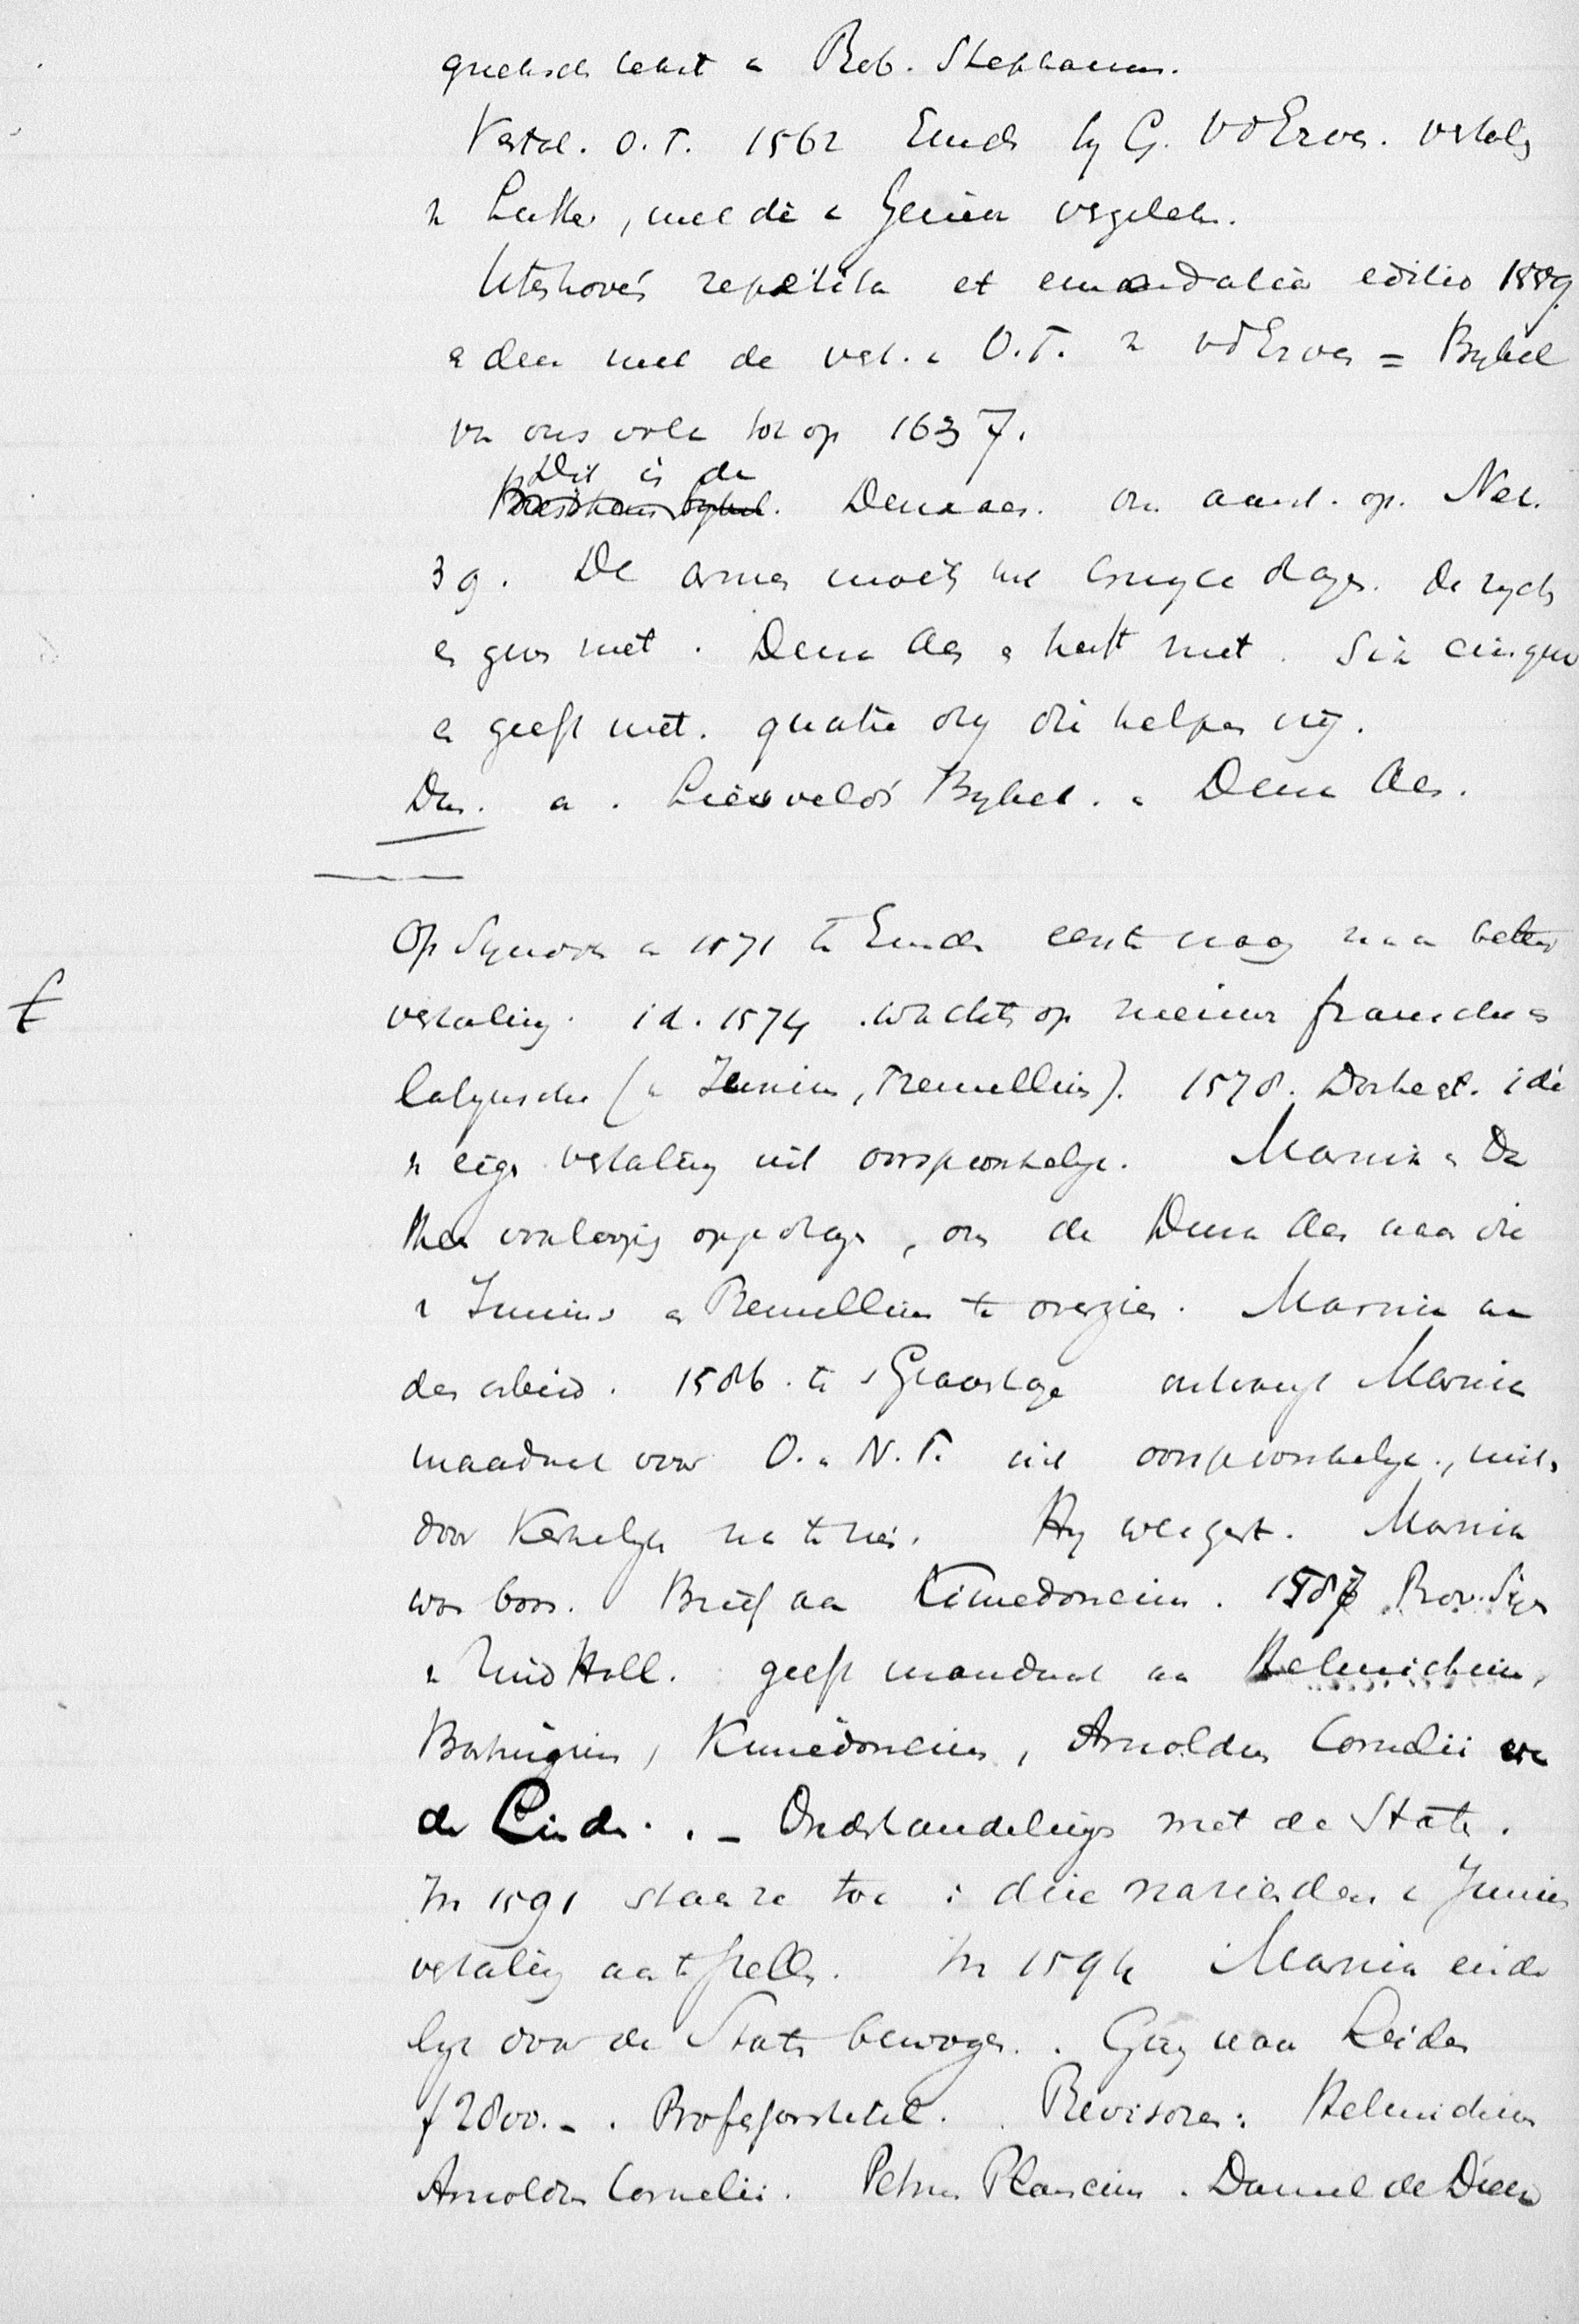 grieksch tekst v Rob. Stephanus.
Vertal. O.T. 1562 Emden by G. vd Erven. vertaling
n Luther, met die v Geneva vergeleken.
Utenhove's repetita et emendatior editio 1559
en den met de vert. v O.T. n vd Erven = Bybel
vn ons volk tot op 1637.
Dit is de
Deux aes. om aant. op. Neh.
3 9. De armen moeten het cruyce dragen. de rycke
en geven niet. Deux Aes en heeft niet. Six cinque
en geeft niet. quater dry die helpen vry.
Dus. a. Liesveldt's Bybel. en Deux Aes.
Op Synode v 1571 te Emden eerste vraag naar een betere
vertaling. id. 1574 wachten op nieuwe fransche en
latynsche (v Junius, Tremellius). 1578. Dordrecht. idee
n eigen vertaling uit oorspronkelyke. Marnix en Da
theen voorloopig opgedragen, om de Deux Aes naar die
v Junius en Tremellius te overzien. Marnix aan
den arbeid. 1586. te s Gravenhage ontvangt Marnix
maadaat voor O. en N.T. uit oorspronkelyke, mits
door Kerkelyke na te zien. Hy weigert. Marnix
was boos. Brief aan Kimedoncius. 1587 Prov. Syn
v Zuid Holl. geeft mandaat aan Helmichius,
Bastingius, Kimedoncius, Arnoldus Cornelii en
de Linden. - Onderhandelingen met de Staten.
In 1591 staan ze toe
vertaling aan te stellen. In 1594 Marnix einde
lyk door de Staten bewogen. Ging naar Leiden
f 2800.-. Professorstitel. Revisoren: Helmichius
Arnoldus Cornelii. Petrus Plancius. Daniel de Dieu